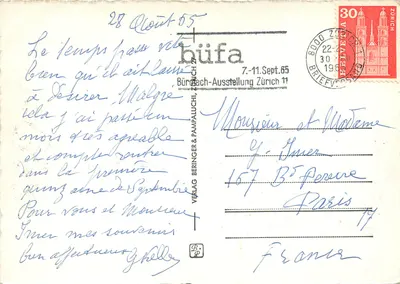 28 Août 65
Le temps passe vite
bien qu'il ait laissé
à désirer. Malgré
cela j'ai passé un
mois très agréable
et compte rentrer
dans la première
quinzaine de Septembre
Pour vous et Monsieur
Imer mes souvenirs
bien affectueux
büfa
7.-11. Sept. 65
Bürofach-Ausstellung Zürich 11
8000 ZÜRICH
BRIEFVERSAND
30
HELVETIA
ZÜRICH
VERLAG BERINGER & PAMPALUCHI, ZÜRICH
Monsieur et Madame
Y. Imer
167 Bd Pereire
Paris
17
France